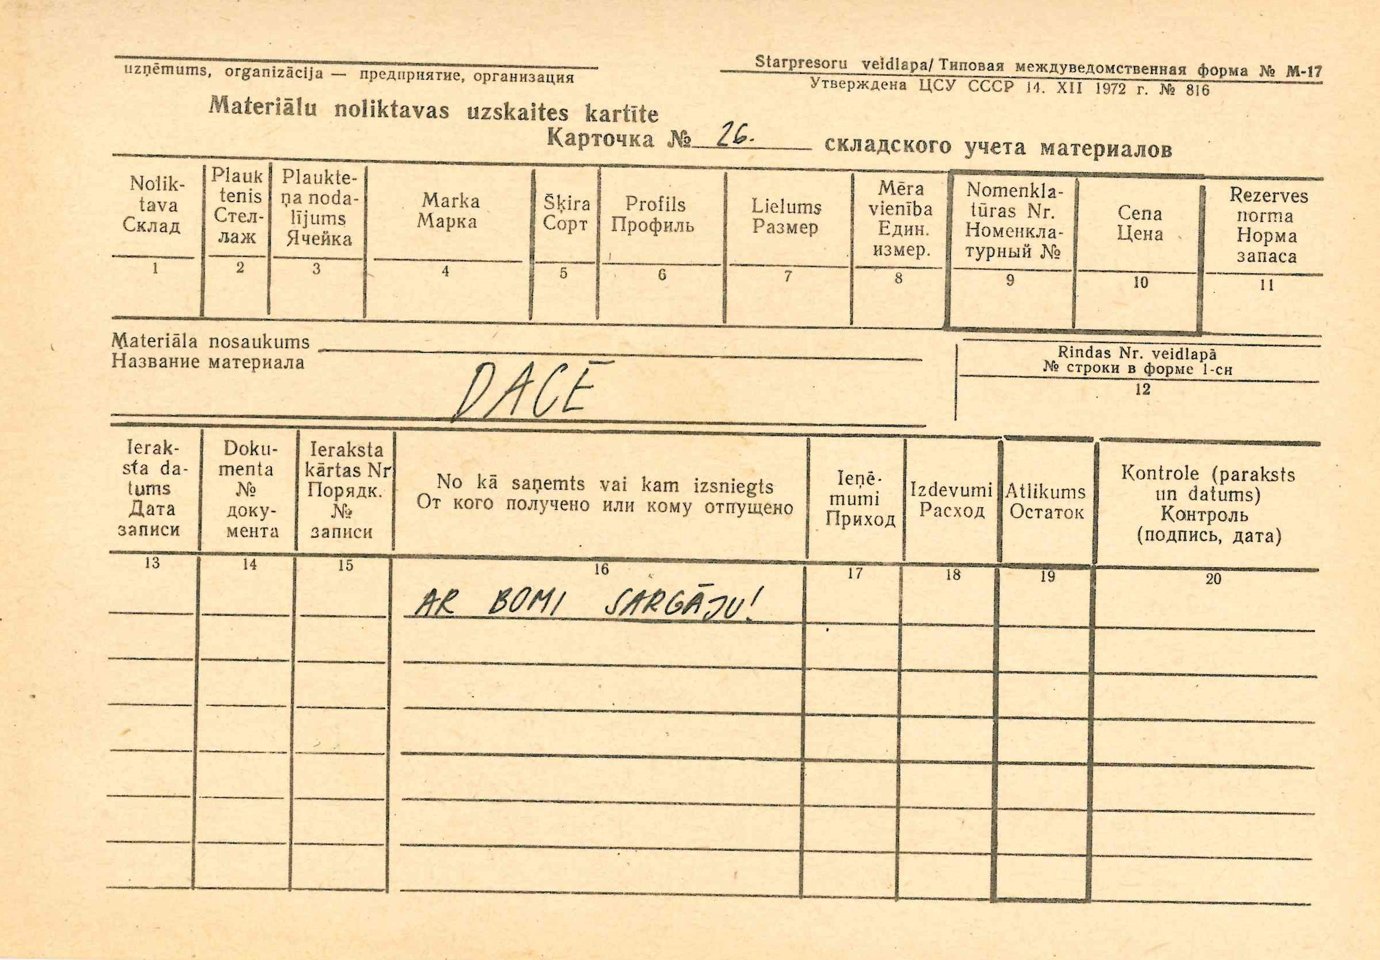 uzņēmums, organizācija — предприятие, организация
Starpresoru veidlapa/Типовая междуведомственная форма № М-17
Утверждена ЦСУ СССР 14. XII 1972 г. № 816
Materiālu noliktavas uzskaites kartīte
Карточка № 26. складского учета материалов
Nolik-
tava
Склад
Plauk
tenis
Стел-
лаж
Plaukte-
ņa noda-
lījums
Ячейка
Marka
Марка
Šķira
Сорт
Profils
Профиль
Lielums
Размер
Mēra
vienība
Един.
измер.
Nomenkla-
tūras Nr.
Номенкла-
турный №
Cena
Цена
Rezerves
norma
Норма
запаса
1 2 3 4 5 6 7 8 9 10 11
Materiāla nosaukums
Название материала
DACĒ
Rindas Nr. veidlapā
№ строки в форме 1-сн
12
Ierak-
sta da-
tums
Дата
записи
Doku-
menta
№
доку-
мента
Ieraksta
kārtas Nr
Порядк.
№
записи
No kā saņemts vai kam izsniegts
От кого получено или кому отпущено
Ieņē-
mumi
Приход
Izdevumi
Расход
Atlikums
Остаток
Kontrole (paraksts
un datums)
Контроль
(подпись, дата)
13 14 15 16 17 18 19 20
AR BOMI SARGĀJU!